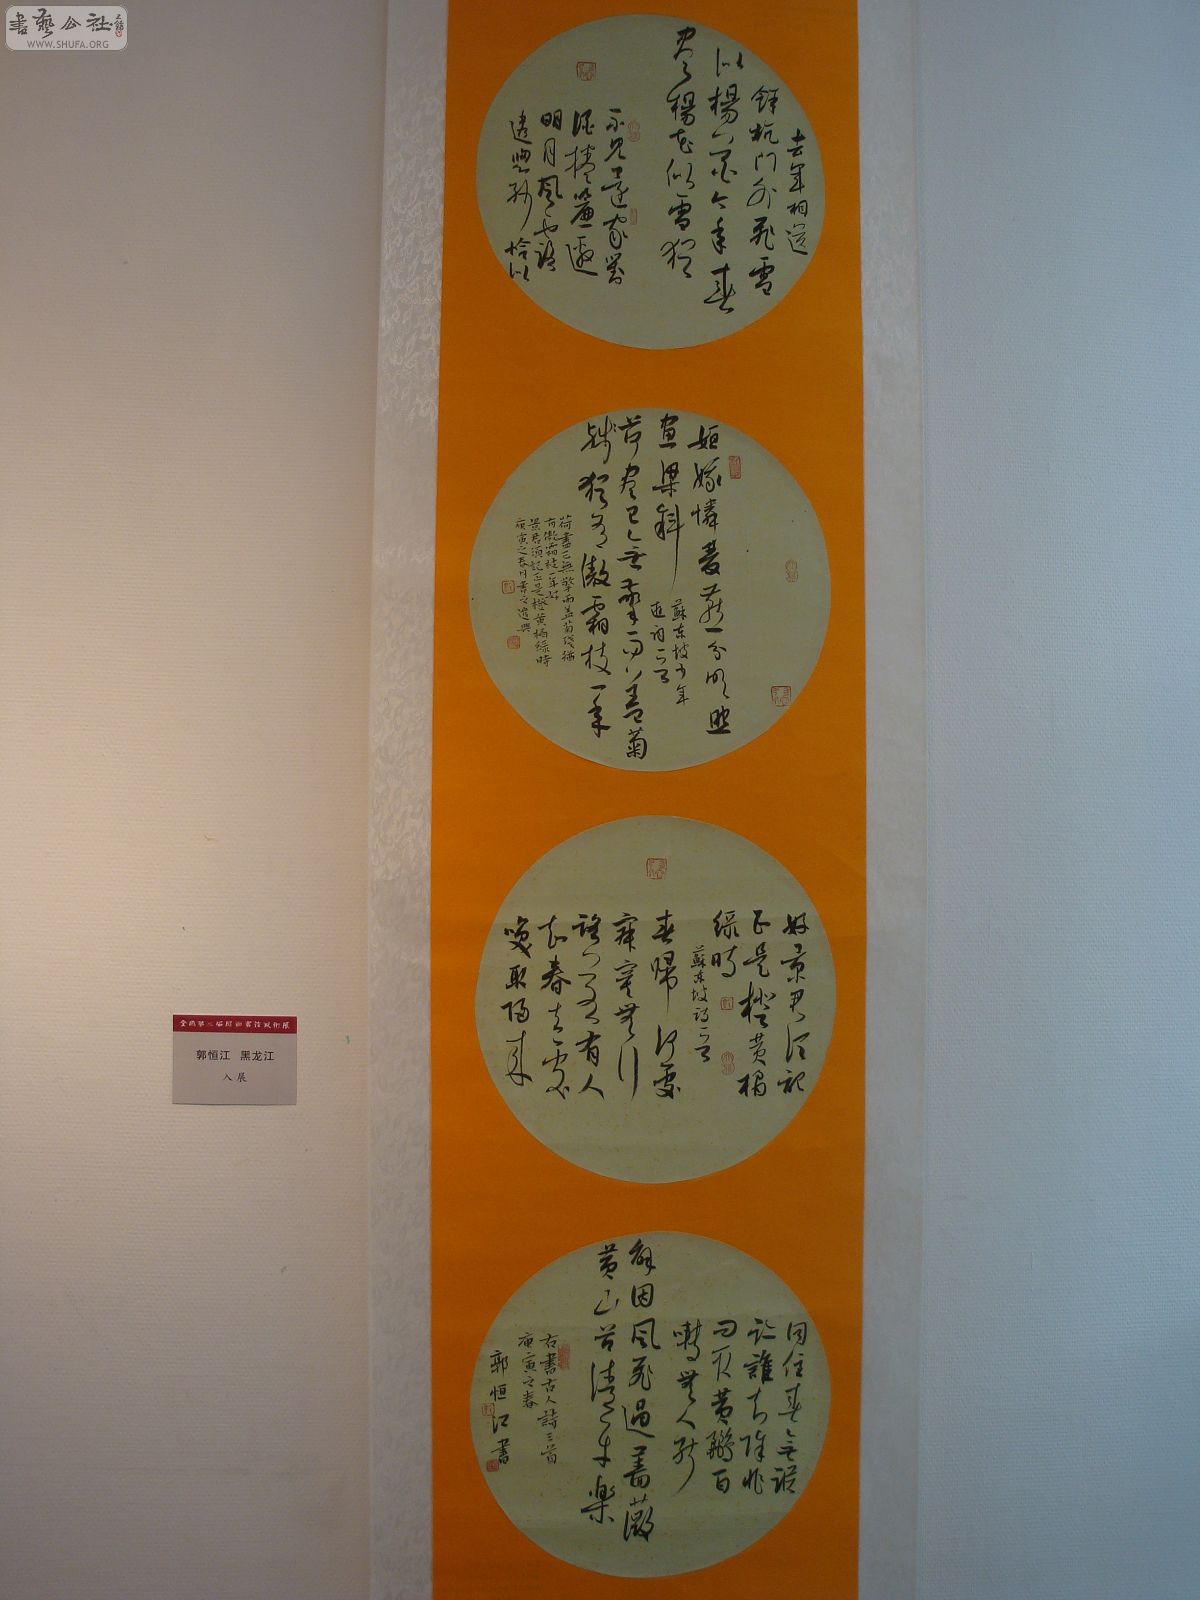 書藝公社
WWW.SHUFA.ORG
去年相送
餘杭門外飛雪
似楊花今年春
盡楊花似雪猶
不見還家對
酒捲簾邀
明月風露
透
恰似
姮娥憐雙燕分明照
畫梁斜
蘇東坡少年
遊詞一首
荷盡已無擎雨蓋菊
殘猶有傲霜枝一年
荷盡已無擎雨蓋菊殘猶
有傲霜枝一年好
景君須記正是橙黃橘綠時
庚寅之春月書之遣興
好景君須記
正是橙黃橘
綠時
蘇東坡詩一首
春歸何處
寂寞無行
路若有人
知春去處
喚取歸來
同住春無蹤
跡誰知除非
問取黃鸝百
囀無人能
解因風飛過薔薇
黃山谷清平樂
右書古人詩三首
庚寅之春
郭恒江書
郭恒江 黑龙江
入展